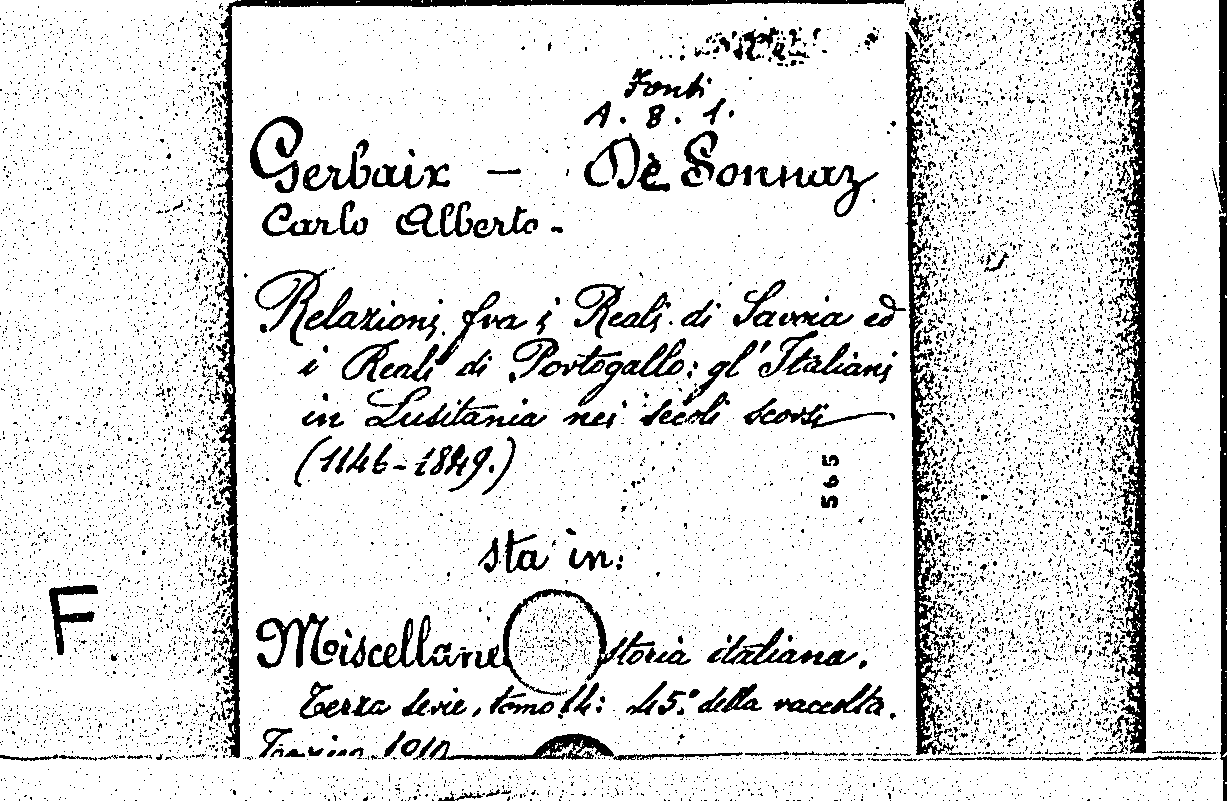 Fonti
A. 8. 1.
Gerbaix - De Sonnaz
Carlo Alberto -
Relazioni fra i Reali di Savoia ed
i Reali di Portogallo: gl'Italiani
in Lusitania nei secoli scorsi
(1146-1849.)
565
sta in:
Miscellane storia italiana.
Terza serie, tomo 14: 45.° della raccolta.
Torino 1910
F